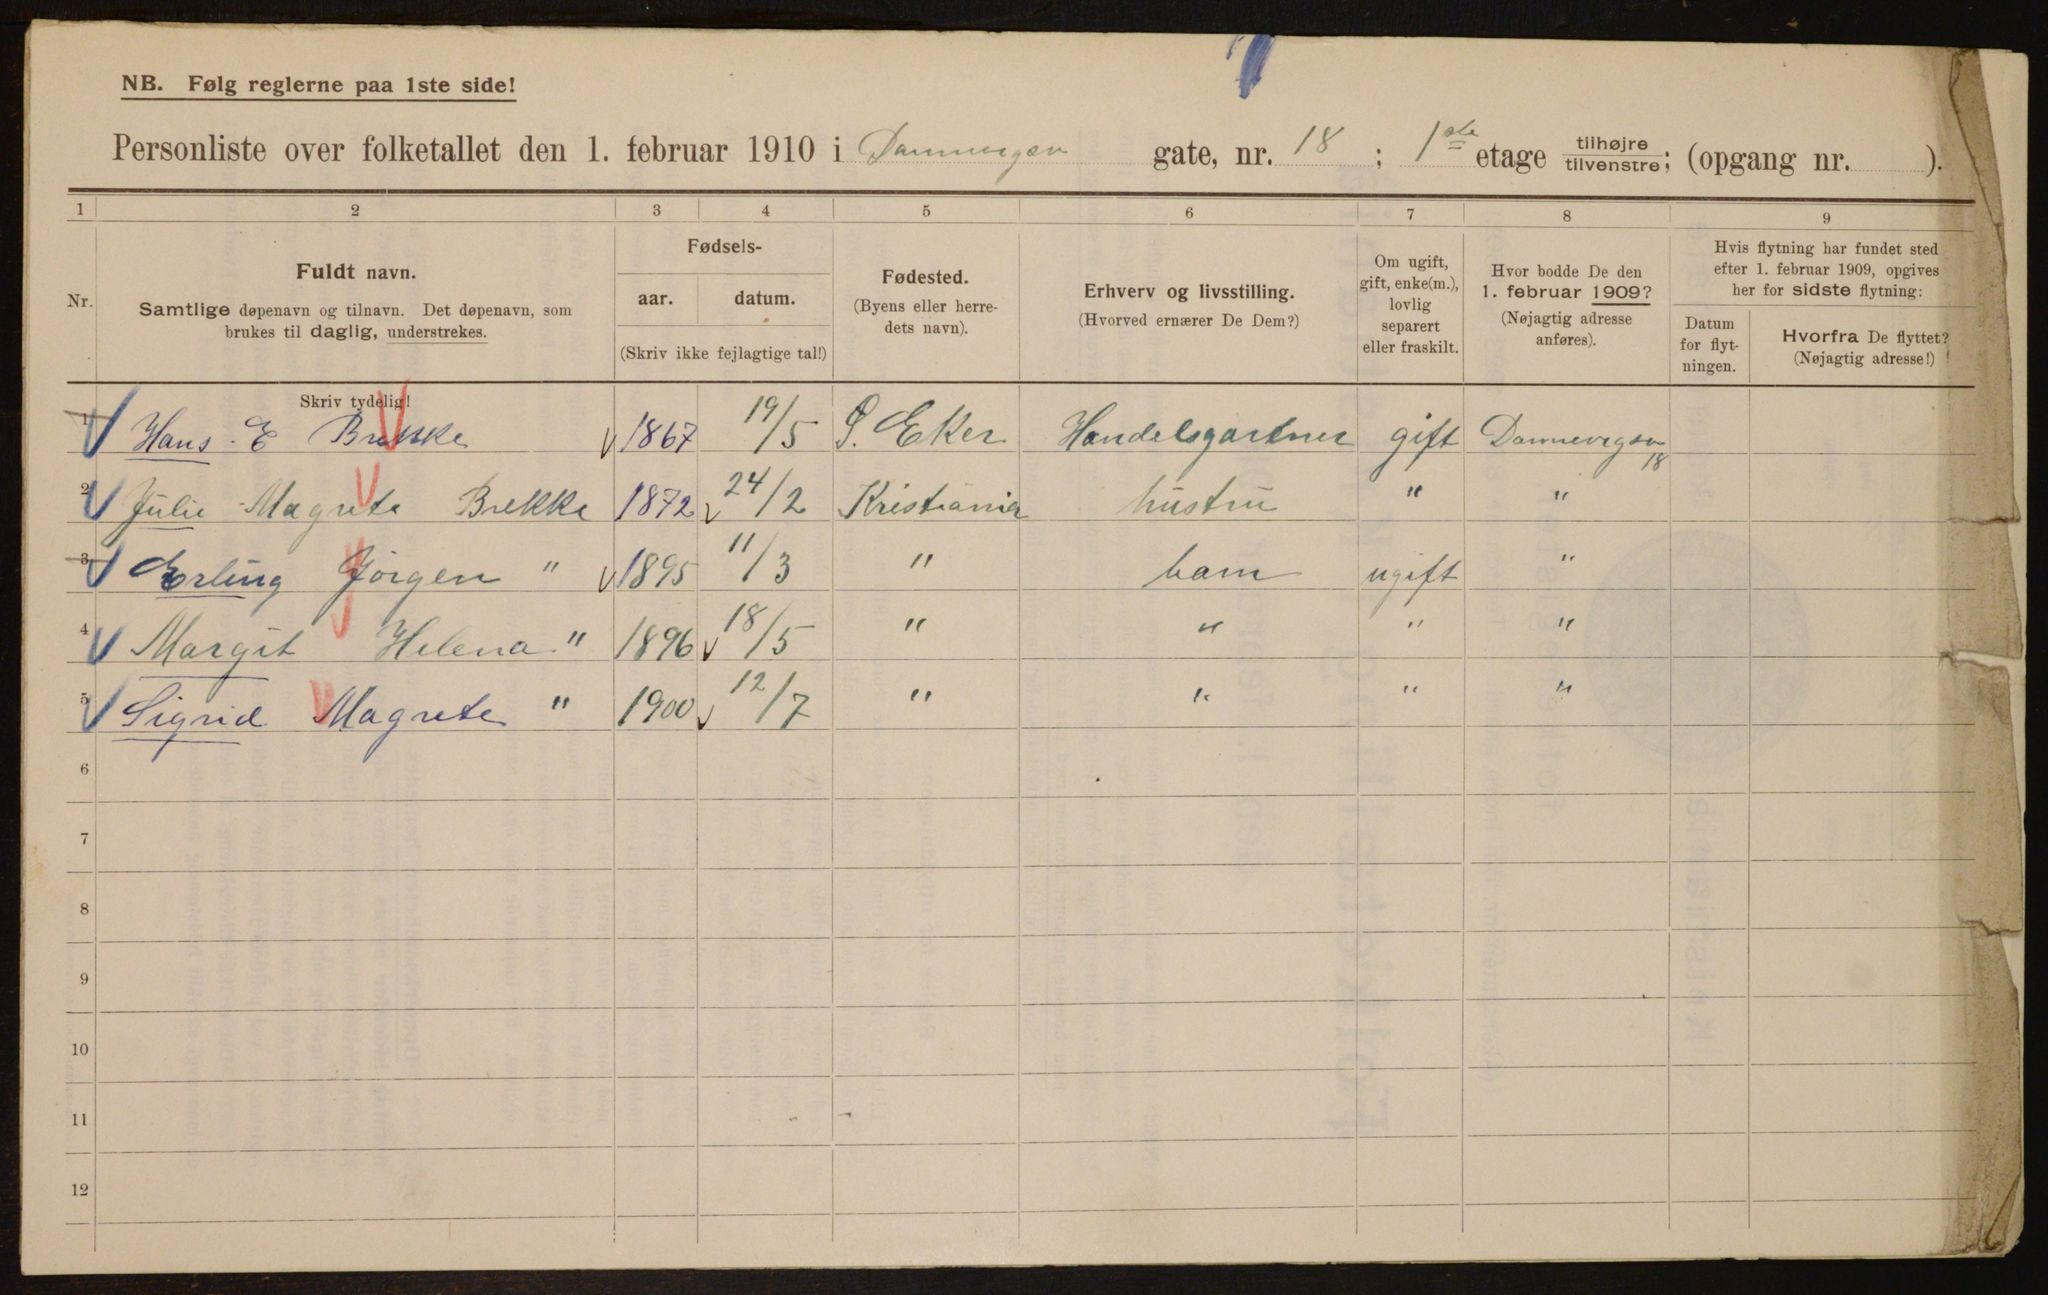 NB. Følg reglerne paa 1ste side!
Personliste over folketallet den 1. februar 1910 i Dannevegsv gate, nr. 18 ; 1ste etage tilhøjre tilvenstre; (opgang nr. ).
1 2 3 4 5 6 7 8 9
Nr.
Fuldt navn.
Samtlige døpenavn og tilnavn. Det døpenavn, som
brukes til daglig, understrekes.
Fødsels-
aar. datum.
(Skriv ikke fejlagtige tal!)
Fødested.
(Byens eller herre-
dets navn).
Erhverv og livsstilling.
(Hvorved ernærer De Dem?)
Om ugift,
gift, enke(m.),
lovlig
separert
eller fraskilt.
Hvor bodde De den
1. februar 1909?
(Nøjagtig adresse
anføres).
Hvis flytning har fundet sted
efter 1. februar 1909, opgives
her for sidste flytning:
Datum
for flyt-
ningen.
Hvorfra De flyttet?
(Nøjagtig adresse!)
Skriv tydelig!
1 Hans E Brekke 1867 19/5 Ø. Eker Handelsgartner gift Dannevegsv 18
2 Julie Magrete Brekke 1872 24/2 Kristiania hustru " "
3 Erling Jørgen " 1895 11/3 " barn ugift "
4 Margit Helena " 1896 18/5 " " " "
5 Sigrid Magrete " 1900 12/7 " " " "
6
7
8
9
10
11
12